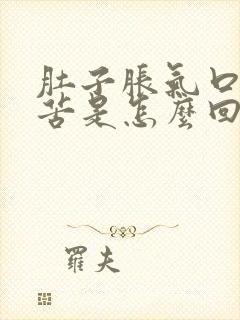 肚子脹氣口
苦是怎麼回
羅夫